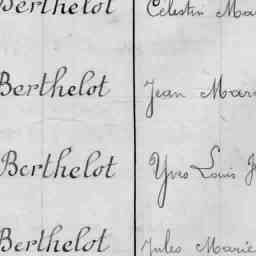 Berthelot Célestin
Berthelot Jean
Berthelot Yves Louis
Berthelot Jules Marie